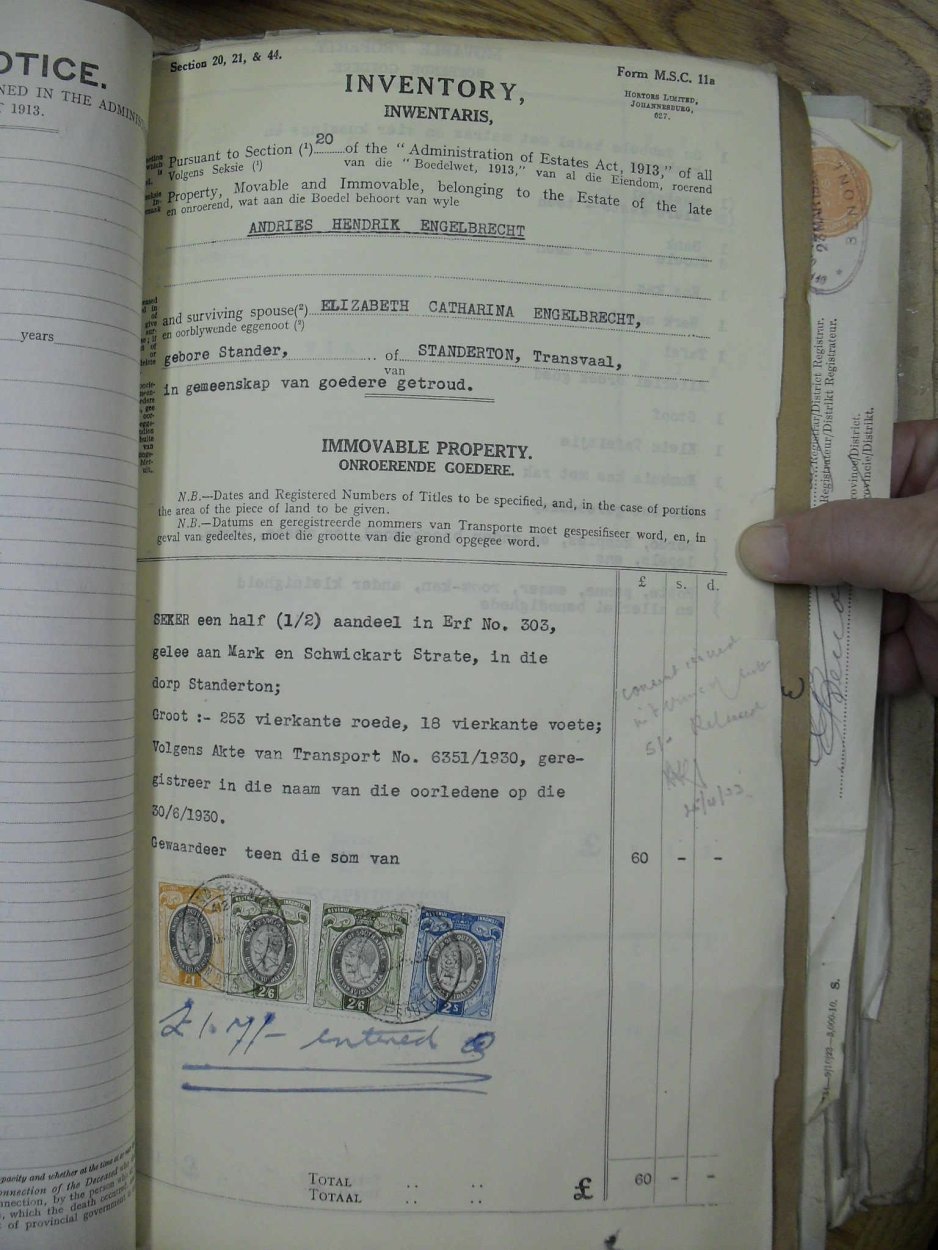 OTICE.
NED IN THE ADMINIS
T 1913.
years
Section 20, 21, & 44.
Form M.S.C. 11a
HORTORS LIMITED,
JOHANNESBURG,
627.
INVENTORY,
INWENTARIS,
Pursuant to Section (¹) 20 of the "Administration of Estates Act, 1913," of all
Volgens Seksie (¹) van die "Boedelwet, 1913," van al die Eiendom, roerend
Property, Movable and Immovable, belonging to the Estate of the late
en onroerend, wat aan die Boedel behoort van wyle
ANDRIES HENDRIK ENGELBRECHT
and surviving spouse(²) ELIZABETH CATHARINA ENGELBRECHT,
en oorblywende eggenoot (²)
gebore Stander, of STANDERTON, Transvaal,
van
in gemeenskap van goedere getroud.
IMMOVABLE PROPERTY.
ONROERENDE GOEDERE.
N.B.—Dates and Registered Numbers of Titles to be specified, and, in the case of portions
the area of the piece of land to be given.
N.B.—Datums en geregistreerde nommers van Transporte moet gespesifiseer word, en, in
geval van gedeeltes, moet die grootte van die grond opgegee word.
£ s. d.
SEKER een half (1/2) aandeel in Erf No. 303,
gelee aan Mark en Schwickart Strate, in die
dorp Standerton;
Groot :- 253 vierkante roede, 18 vierkante voete;
Volgens Akte van Transport No. 6351/1930, gere-
gistreer in die naam van die oorledene op die
30/6/1930.
Gewaardeer teen die som van 60 - -
5/- Released
£1
2/6
2/6
2s
£1.7/- entered
TOTAL .. .. £ 60 - -
TOTAAL .. ..
apacity and whether at the time
onnection of the Deceased
nnection, by the person
, which the death occurred
t of provincial government
BENONI
Registrar/District Registrar.
Registrateur/Distrikt Registrateur.
Province/District.
Provincie/Distrikt.
S.